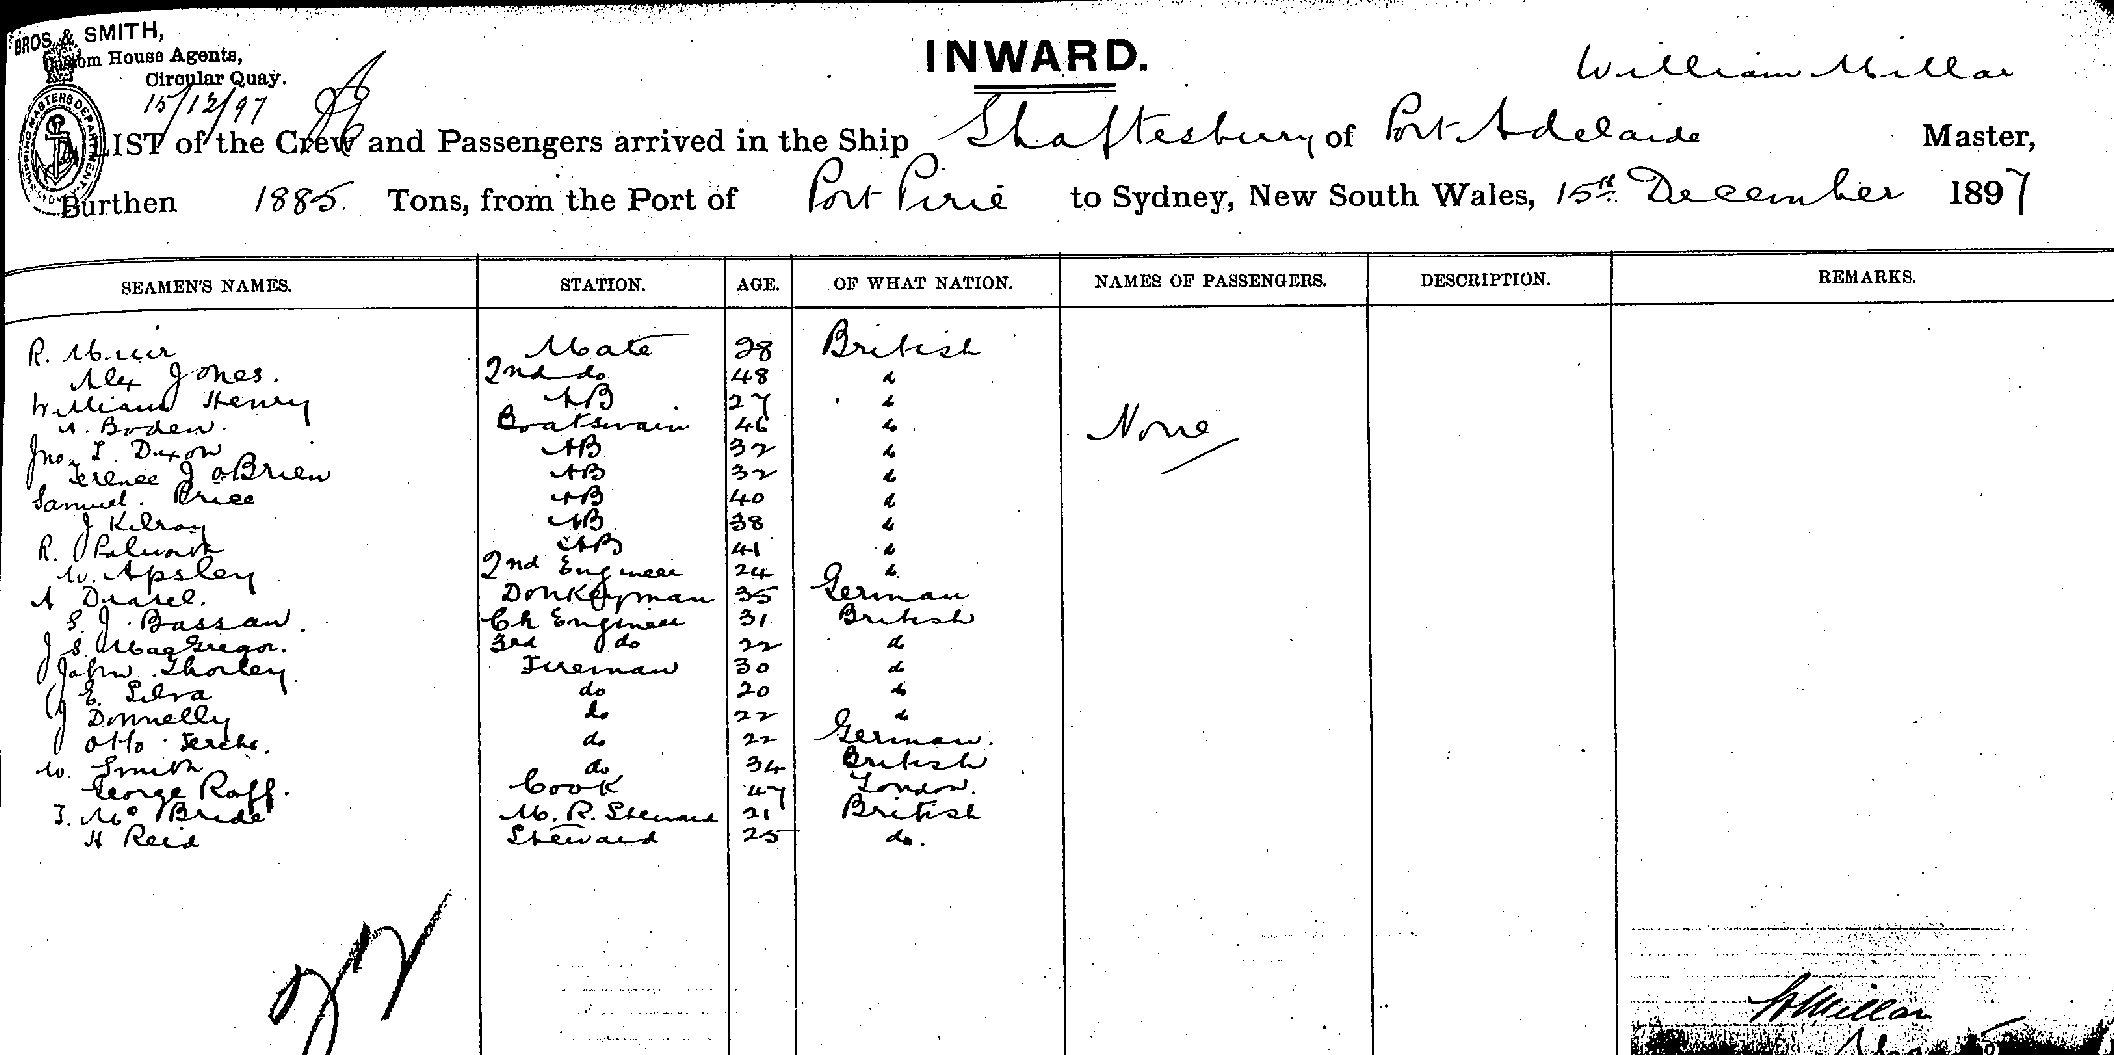 BROS. & SMITH,
Custom House Agents,
Circular Quay.
15/12/97
INWARD.
William Millar
A LIST of the Crew and Passengers arrived in the Ship Shaftesbury of Port Adelaide Master,
Burthen 1885. Tons, from the Port of Port Pirie to Sydney, New South Wales, 15th December 1897
SEAMEN'S NAMES. STATION. AGE. OF WHAT NATION. NAMES OF PASSENGERS. DESCRIPTION. REMARKS.
R. Muir Mate 28 British
Alex Jones. 2nd do 48 "
William Henry AB 27 "
A. Boden. Boatswain 46 " None
Jno. T. Dixon AB 32 "
Terence J O'Brien AB 32 "
Samuel. Price AB 40 "
J Kilroy AB 38 "
R. AB 41 "
W. Apsley 2nd Engineer 24 "
A Donkeyman 35 German
S. J. Bassan. Ch Engineer 31 British
J. S. MacGregor. 3rd do 22 "
John Thorley. Fireman 30 "
E. Silva do 20 "
J Donnelly do 22 "
Otto do 22 German.
W. Smith do 34 British
George Raff. Cook 47 London.
T. McBride M. R. Steward 21 British
H Reid Steward 25 do.
22
W Millar